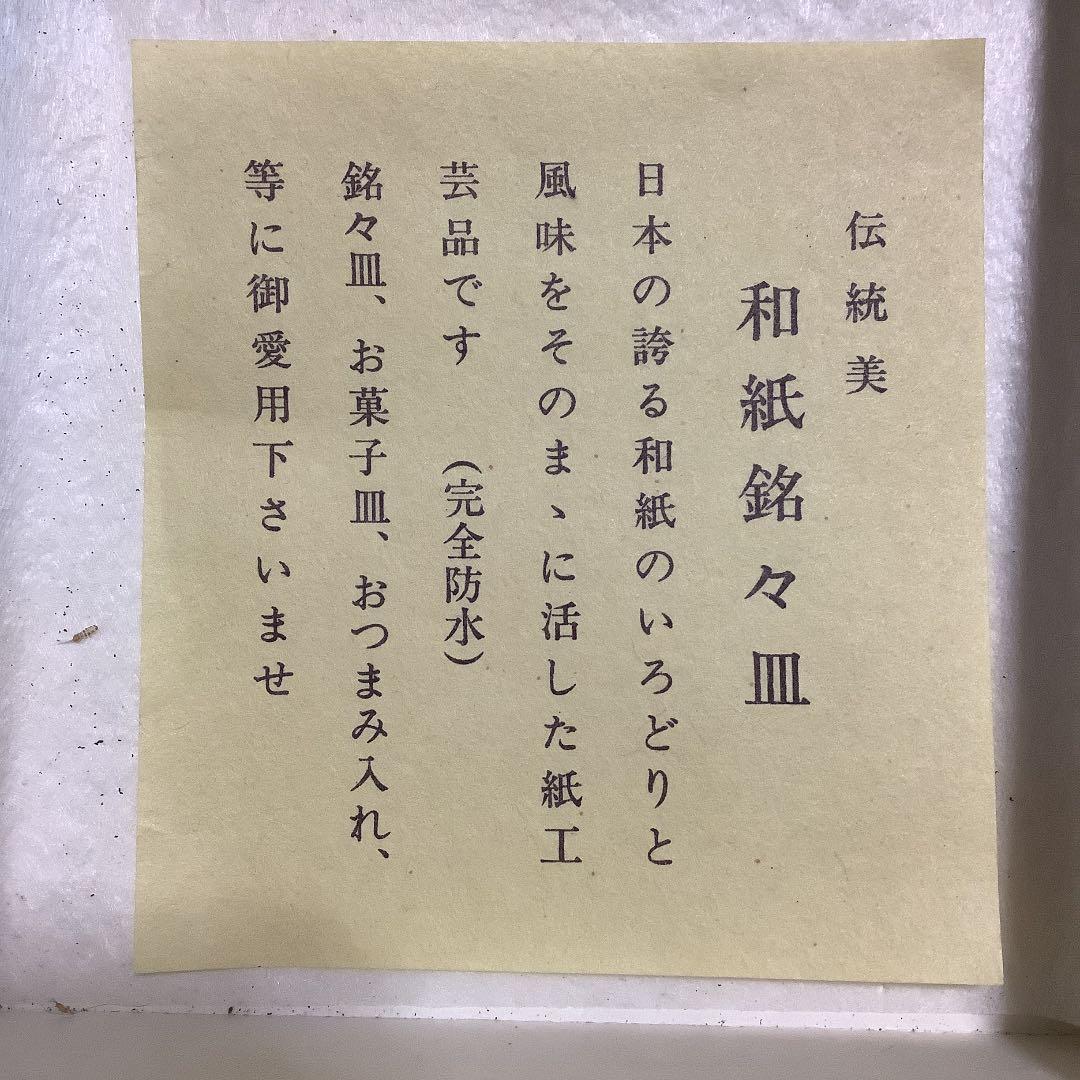 伝統美
和紙銘々皿
日本の誇る和紙のいろどりと
風味をそのまゝに活した紙工
芸品です (完全防水)
銘々皿、お菓子皿、おつまみ入れ、
等に御愛用下さいませ